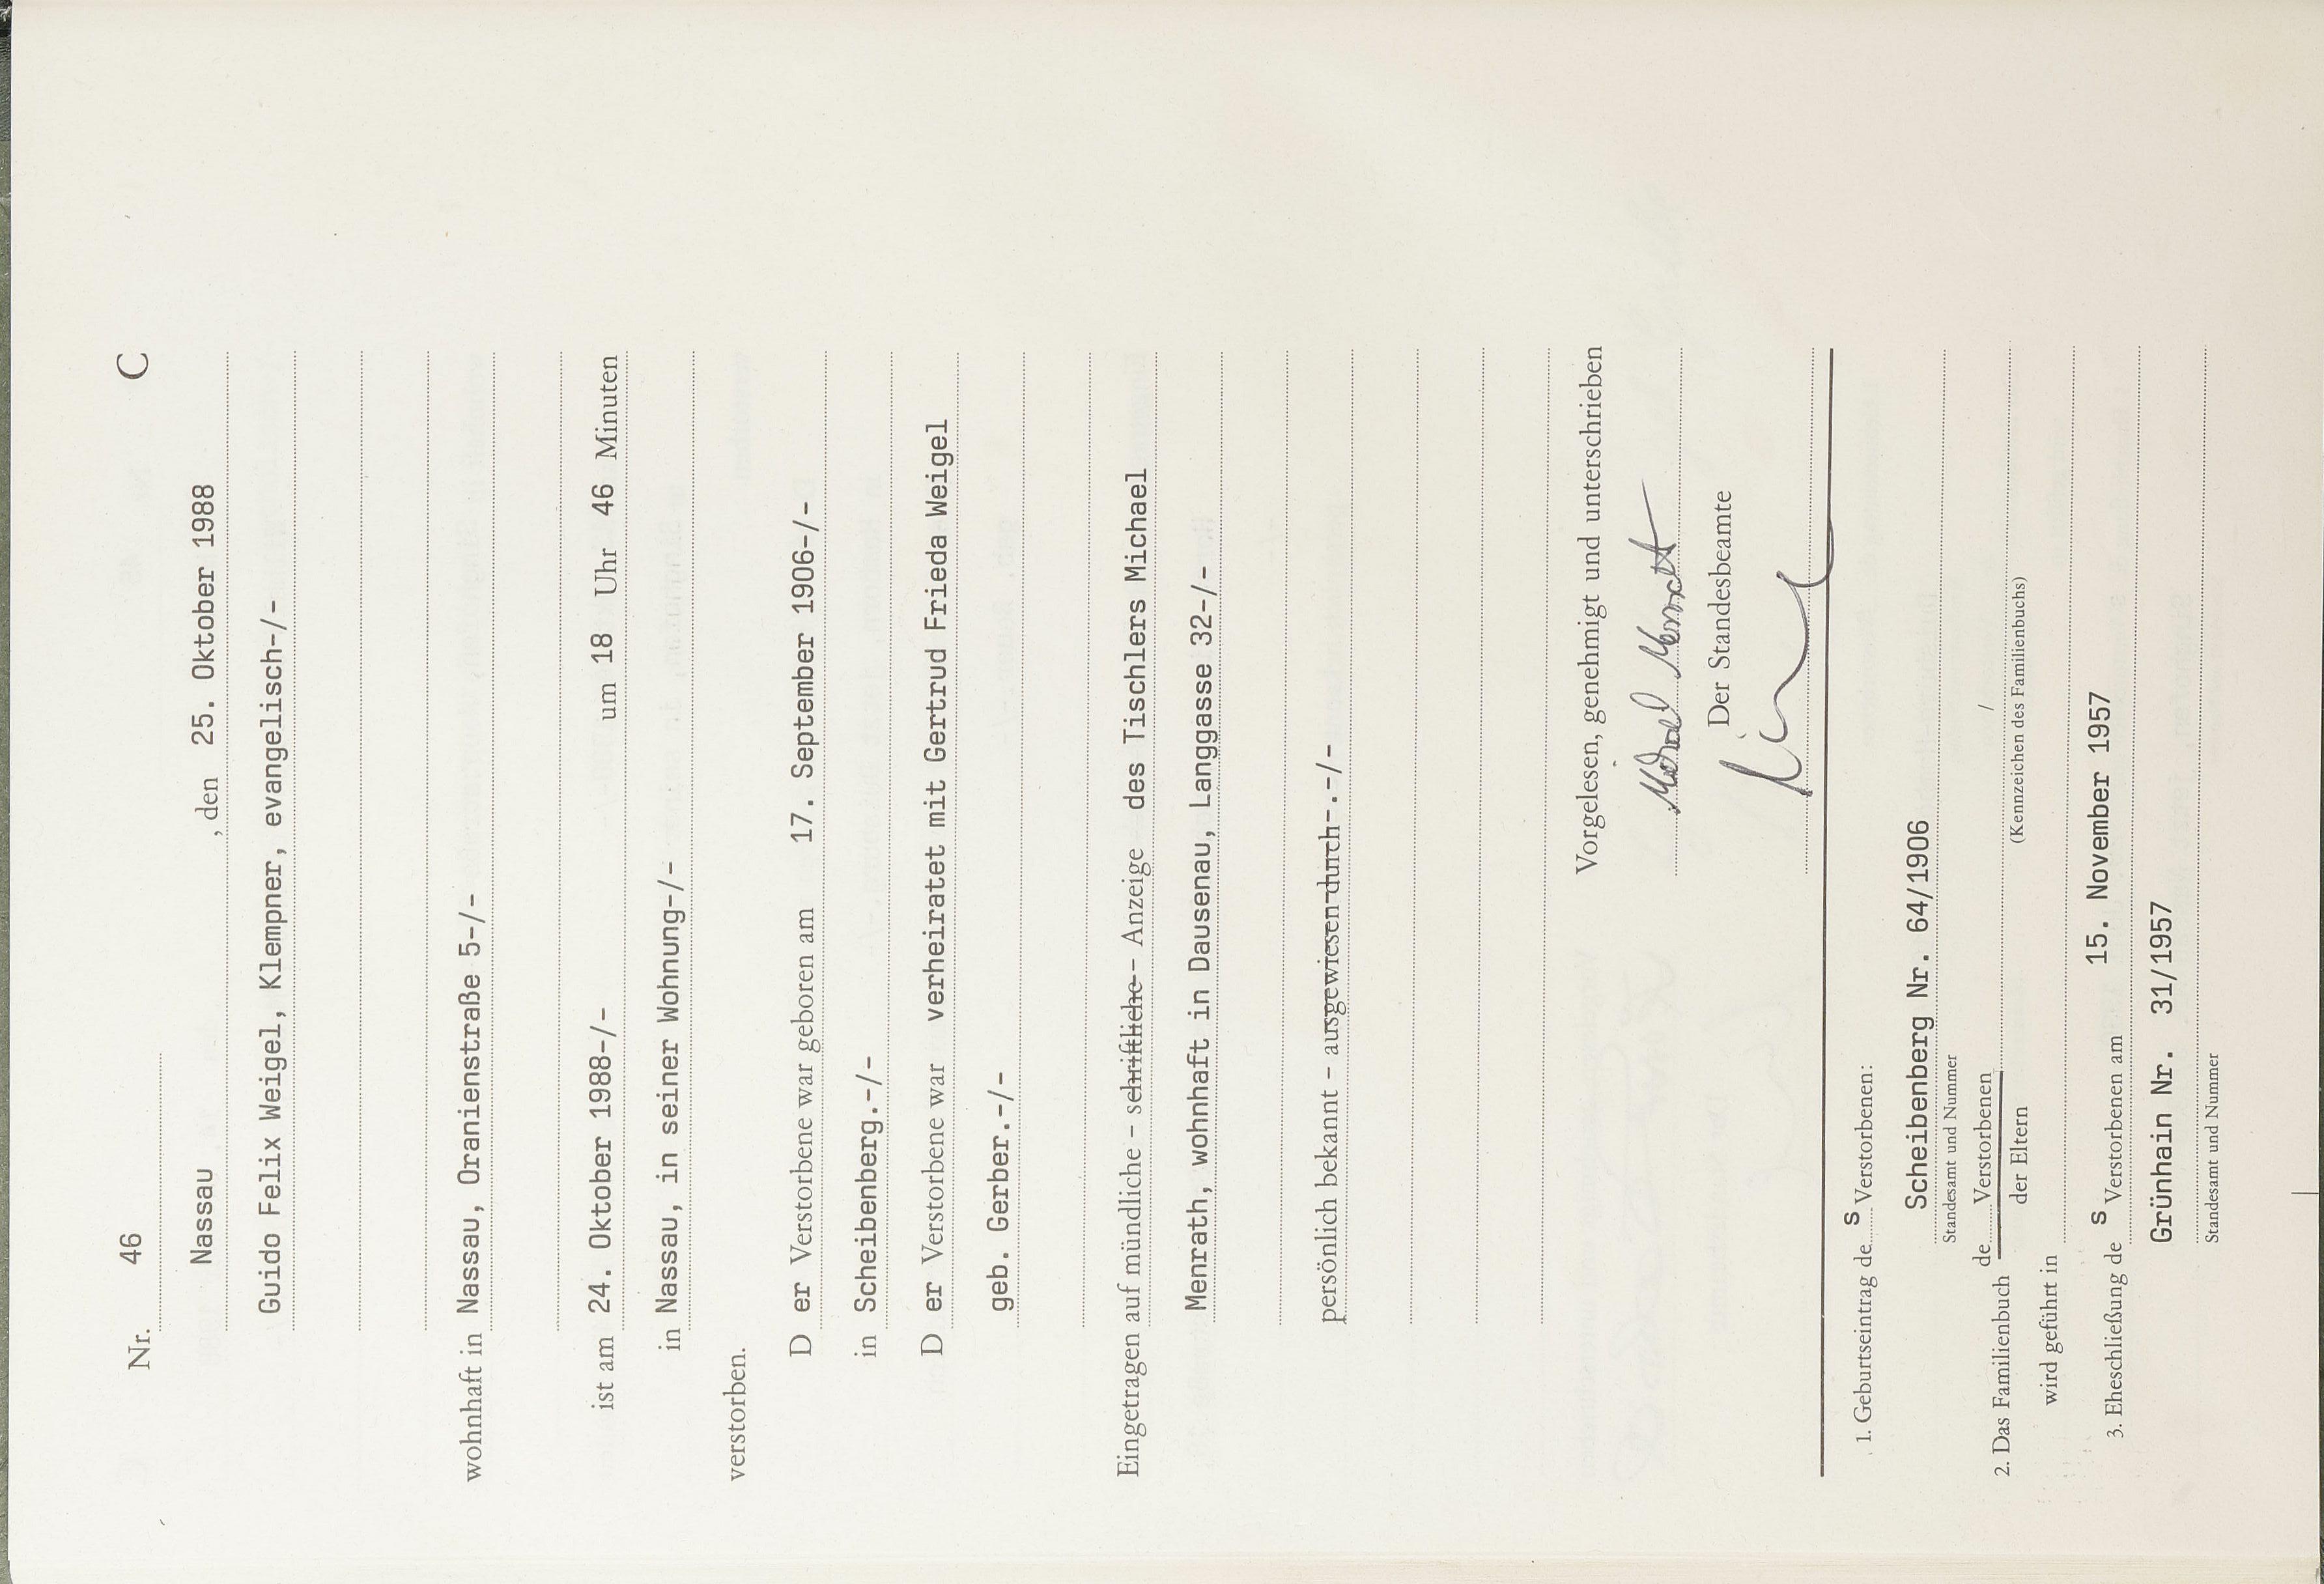 Nr. 46 C
Nassau , den 25. Oktober 1988
Guido Felix Weigel, Klempner, evangelisch-/-
wohnhaft in Nassau, Oranienstraße 5-/-
ist am 24. Oktober 1988-/- um 18 Uhr 46 Minuten
in Nassau, in seiner Wohnung-/-
verstorben.
D er Verstorbene war geboren am 17. September 1906-/-
in Scheibenberg.-/-
D er Verstorbene war verheiratet mit Gertrud Frieda Weigel
geb. Gerber.-/-
Eingetragen auf mündliche – schriftliche – Anzeige des Tischlers Michael
Menrath, wohnhaft in Dausenau, Langgasse 32-/-
persönlich bekannt – ausgewiesen durch-.-/-
Vorgelesen, genehmigt und unterschrieben
Michael Menrath
Der Standesbeamte
1. Geburtseintrag de s Verstorbenen:
Scheibenberg Nr. 64/1906
Standesamt und Nummer
2. Das Familienbuch de Verstorbenen /
der Eltern (Kennzeichen des Familienbuchs)
wird geführt in
3. Eheschließung de s Verstorbenen am 15. November 1957
Grünhain Nr. 31/1957
Standesamt und Nummer